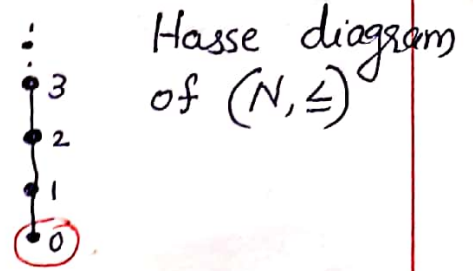 Hasse diagram
of (N, ≤)
3
2
1
0